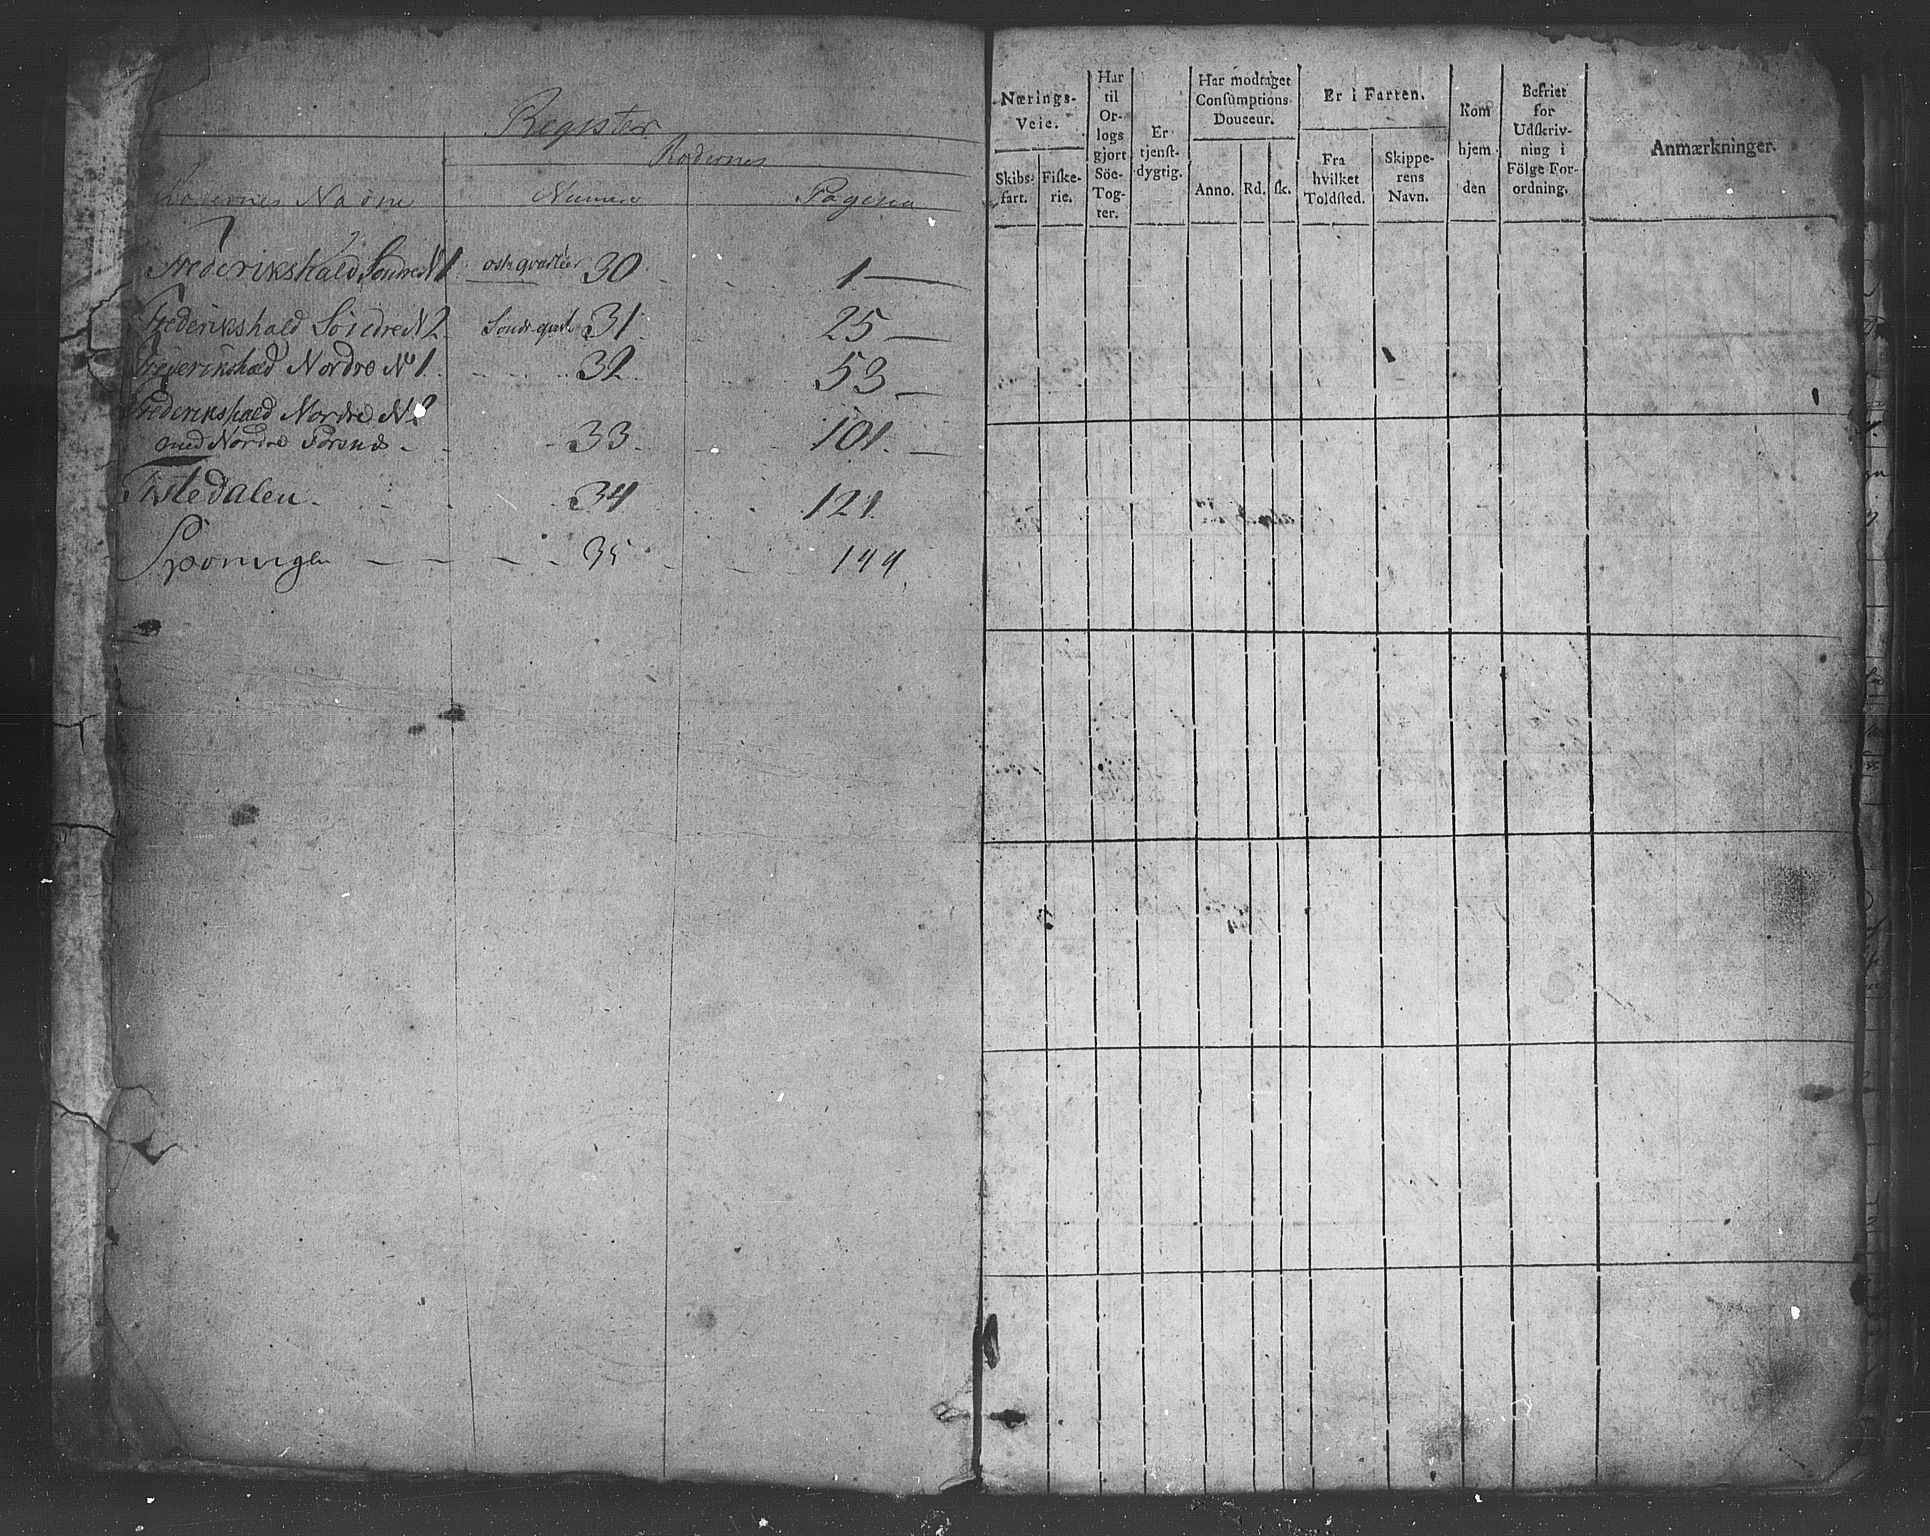 Register
Rodernes
Rodernes Navne Numero Pagina
Frederikshald Sondre N1 ostqvarteer 30 1
Frederikshald Söndre N2 Sondr qvart 31 25
Frederikshald Nordre No 1 32 53
Frederikshald Nordre N2
med Nordre Forsnd 33 101
Tistedalen 34 121
Sponvigen 35 144
Nærings-
Veie.
Skibs-
fart.
Fiske-
rie.
Har
til
Or-
logs
gjort
Söe-
Tog-
ter.
Er
tjenst-
dygtig.
Har modtaget
Consumptions-
Douceur.
Anno. Rd. sk.
Er i Farten.
Fra
hvilket
Toldsted.
Skippe-
rens
Navn.
Kom
hjem
den
Befriet
for
Udskriv-
ning i
Fölge For-
ordning.
Anmærkninger.